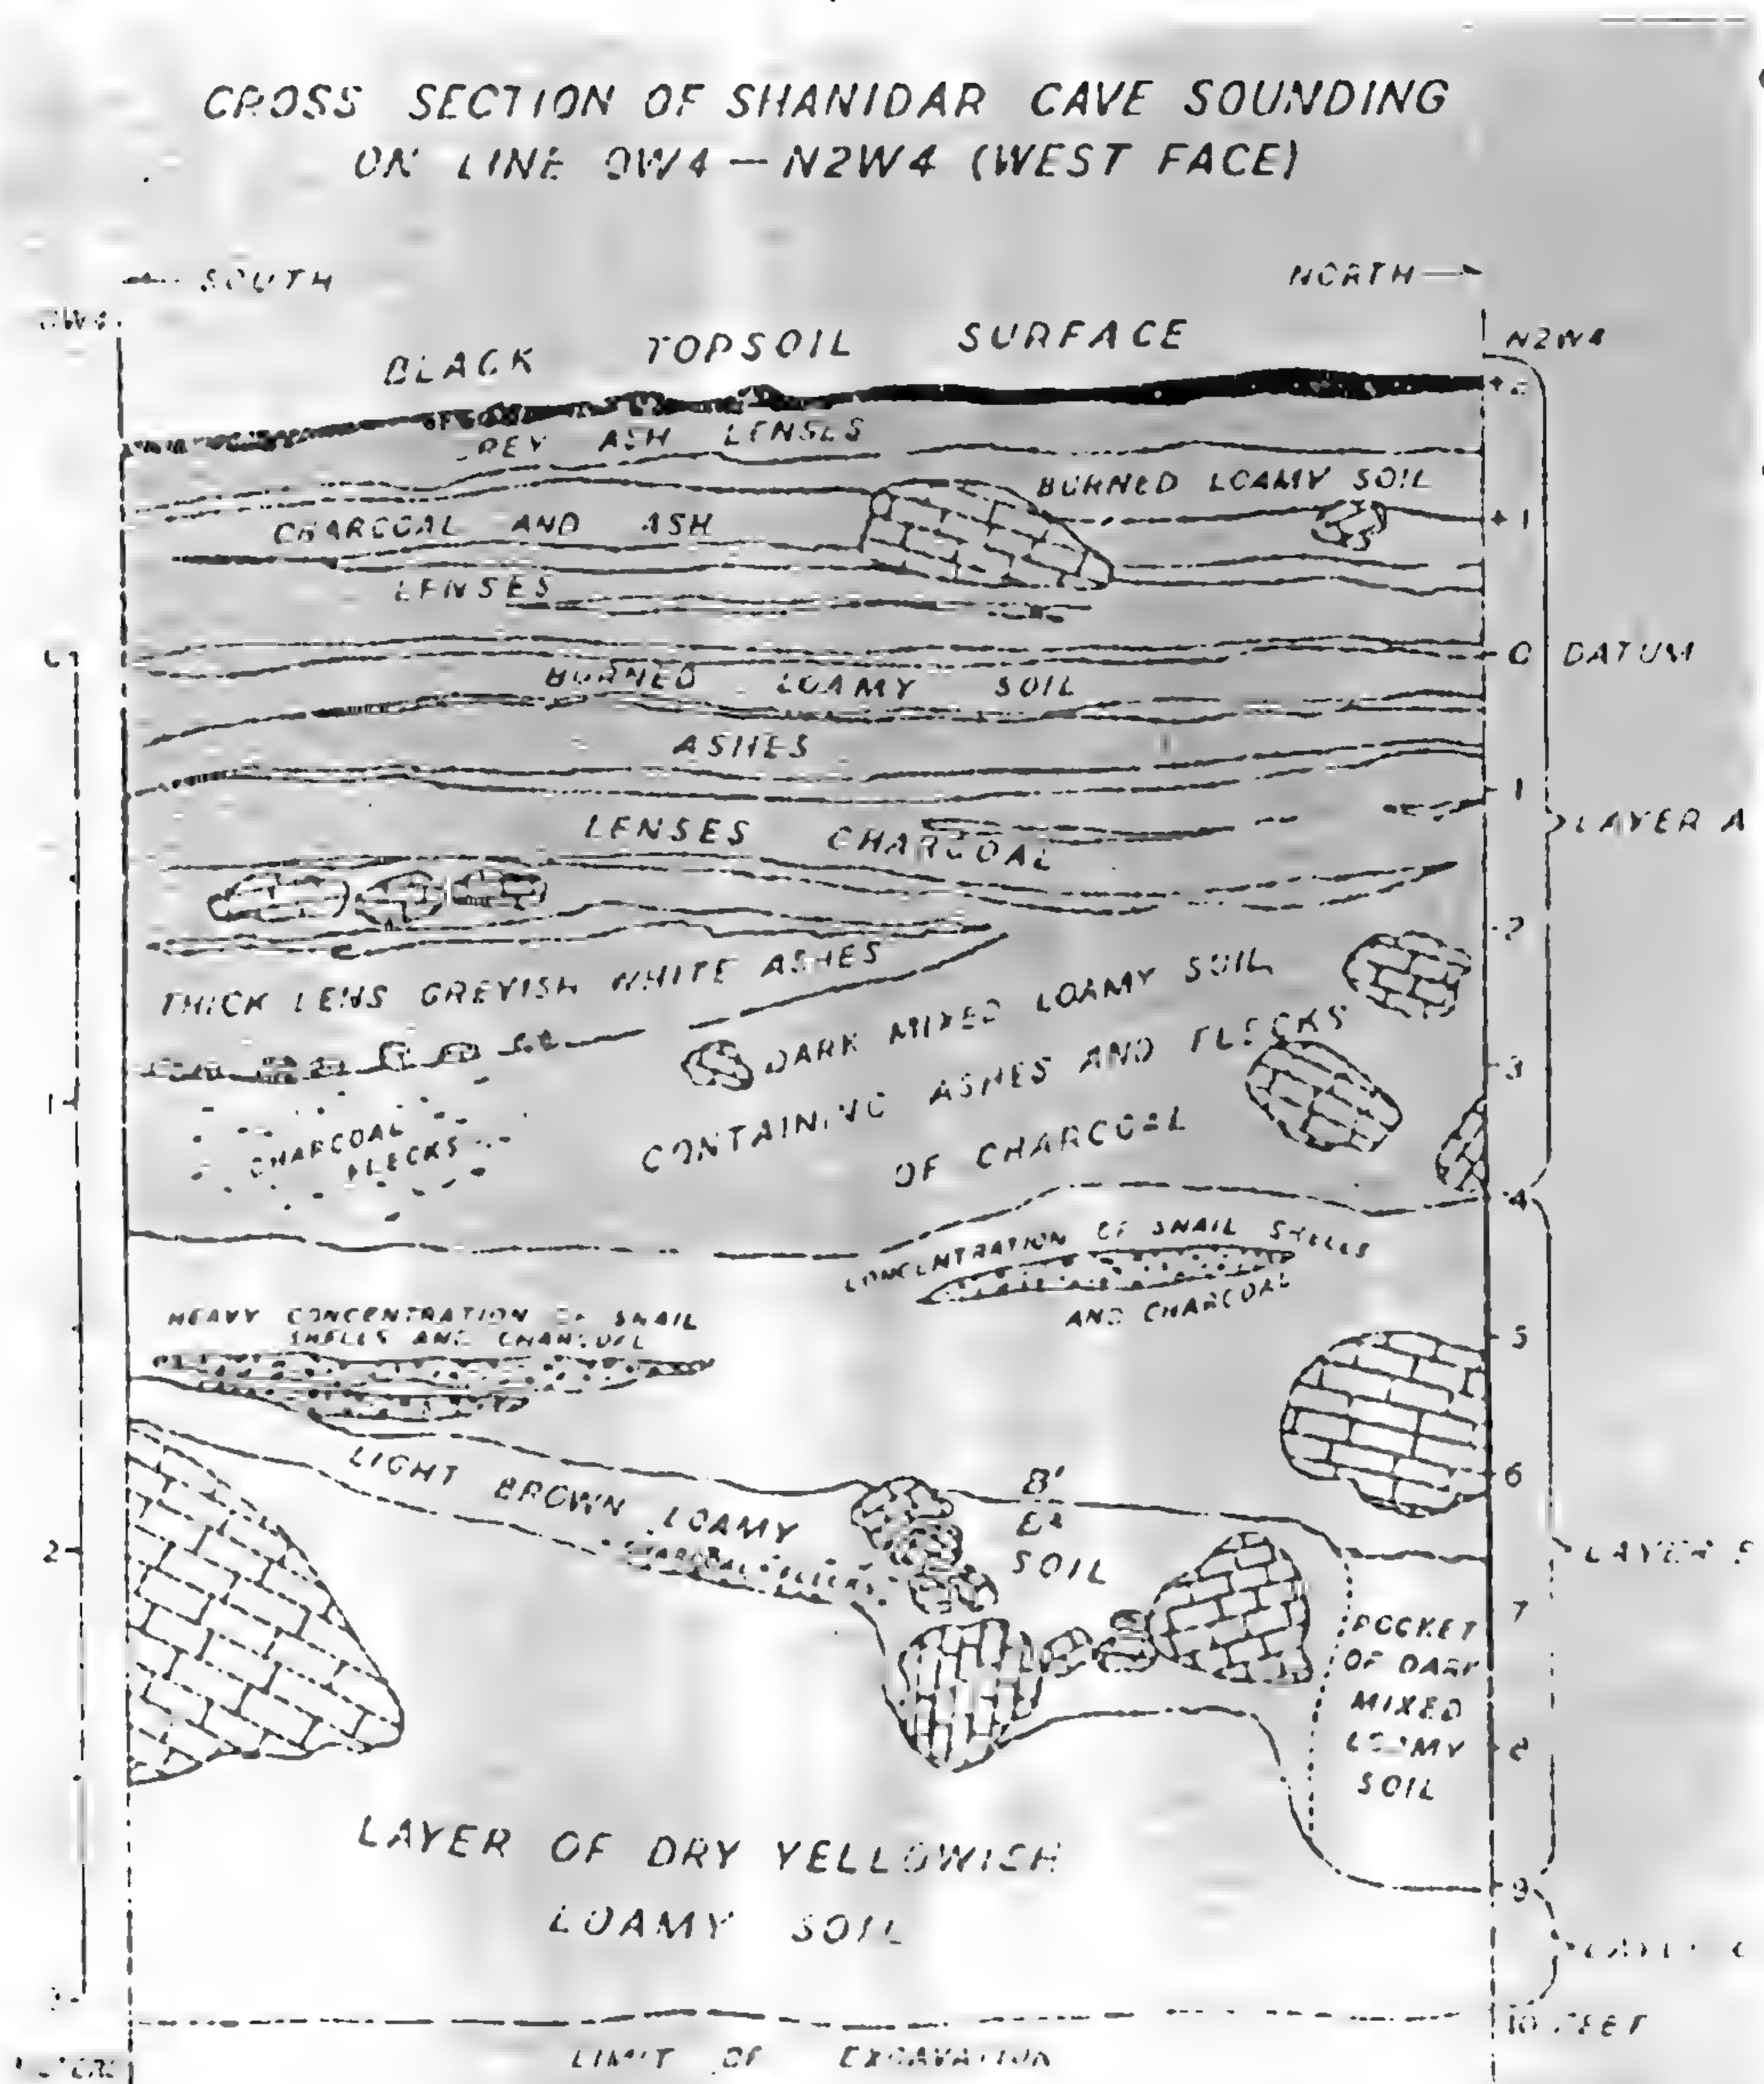 CROSS SECTION OF SHANIDAR CAVE SOUNDING
ON LINE 0W4 — N2W4 (WEST FACE)
SOUTH
NORTH
0W4
N2W4
BLACK TOPSOIL SURFACE
+2
GREY ASH LENSES
BURNED LOAMY SOIL
CHARCOAL AND ASH
+1
LENSES
0
0 DATUM
BURNED LOAMY SOIL
ASHES
1
LENSES CHARCOAL
LAYER A
2
THICK LENS GREYISH WHITE ASHES
DARK MIXED LOAMY SOIL
CONTAINING ASHES AND FLECKS
OF CHARCOAL
3
1
CHARCOAL
FLECKS
4
CONCENTRATION OF SNAIL SHELLS
AND CHARCOAL
HEAVY CONCENTRATION OF SNAIL
SHELLS AND CHARCOAL
5
6
LIGHT BROWN LOAMY
SOIL
B'
2
LAYER
7
POCKET
OF DARK
MIXED
LOAMY
SOIL
8
LAYER OF DRY YELLOWISH
LOAMY SOIL
9
10 FEET
LIMIT OF EXCAVATION
METERS